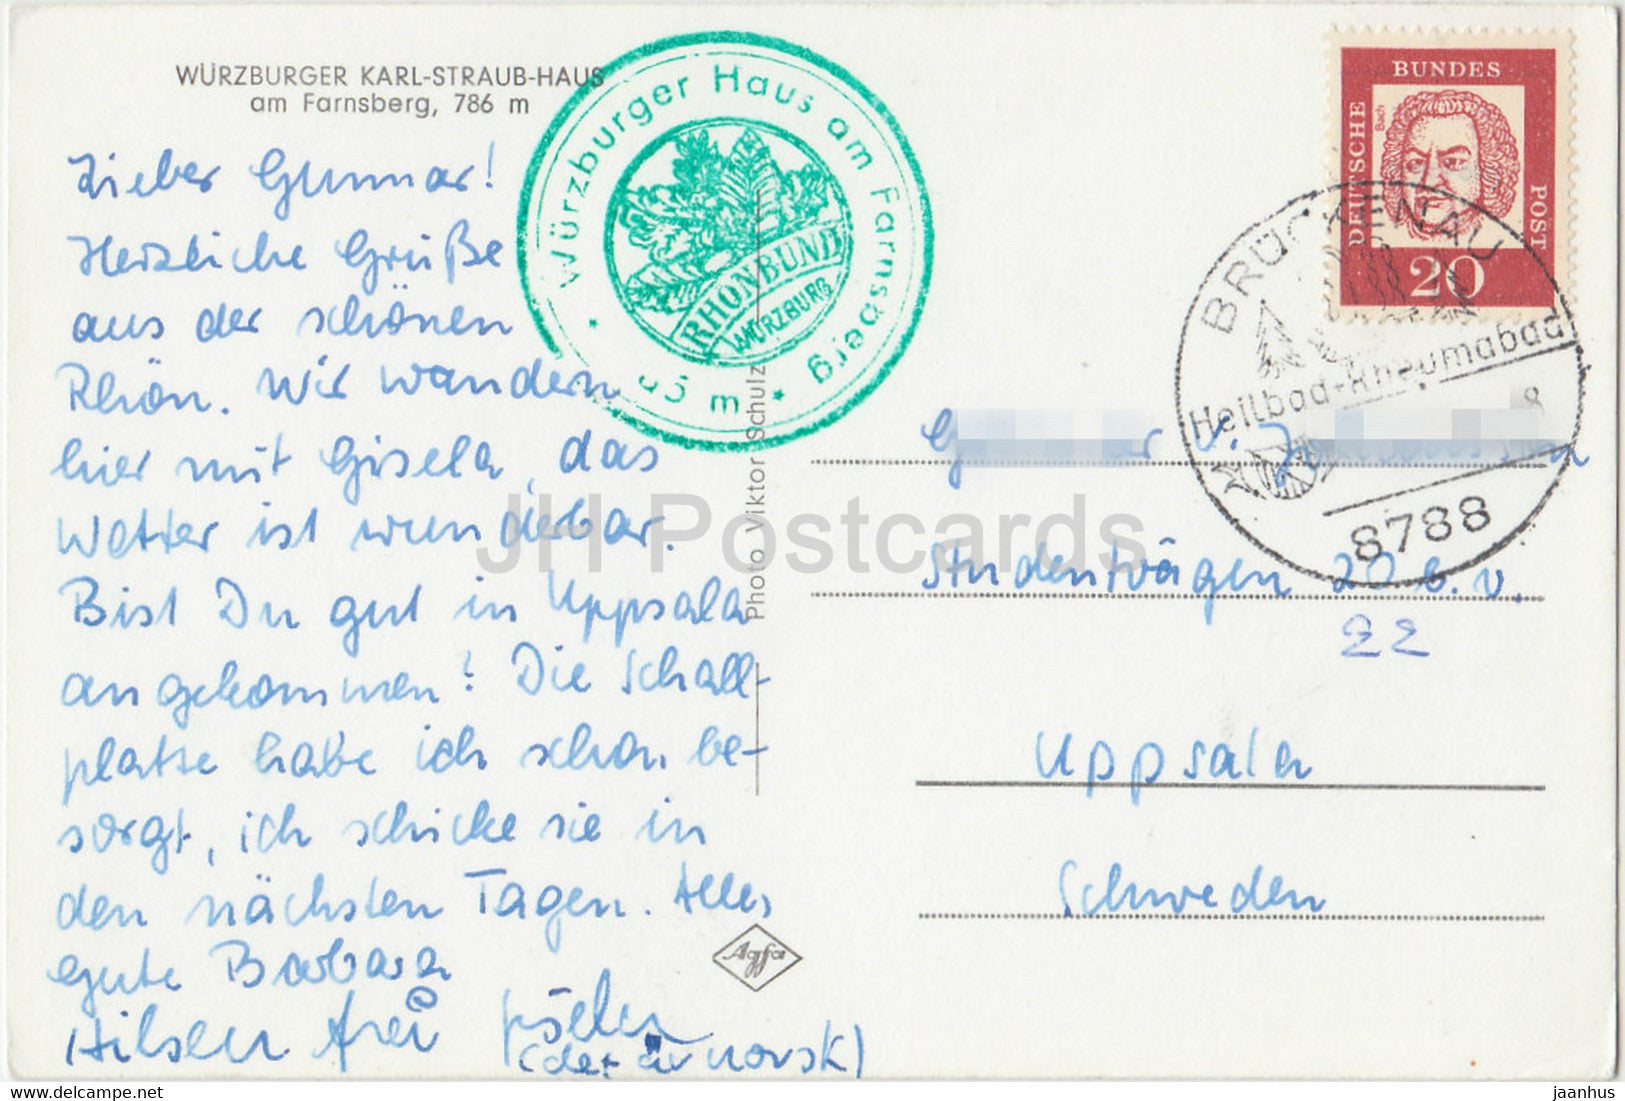 WÜRZBURGER KARL-STRAUB-HAUS
am Farnsberg, 786 m
Lieber Gunnar!
Herzliche Grüße
aus der schönen
Rhön. Wir wandern
hier mit Gisela, das
Wetter ist wunderbar.
Bist Du gut in Uppsala
angekommen? Die Schall-
platte habe ich schon be-
sorgt, ich schicke sie in
den nächsten Tagen. Alles
gute Barbara
Hilsen frei
(det är norsk)
Würzburger Haus am Farnsberg
RHÖNBUND
WÜRZBURG
Photo Viktor Schulz
Agfa
BUNDES
DEUTSCHE
POST
Bach
20
BRÜCKENAU
Heilbad-Rheumabad
8
8788
Studentvägen 20 b.v.
22
Uppsala
Schweden
JH Postcards
delcampe.net
jaanhus